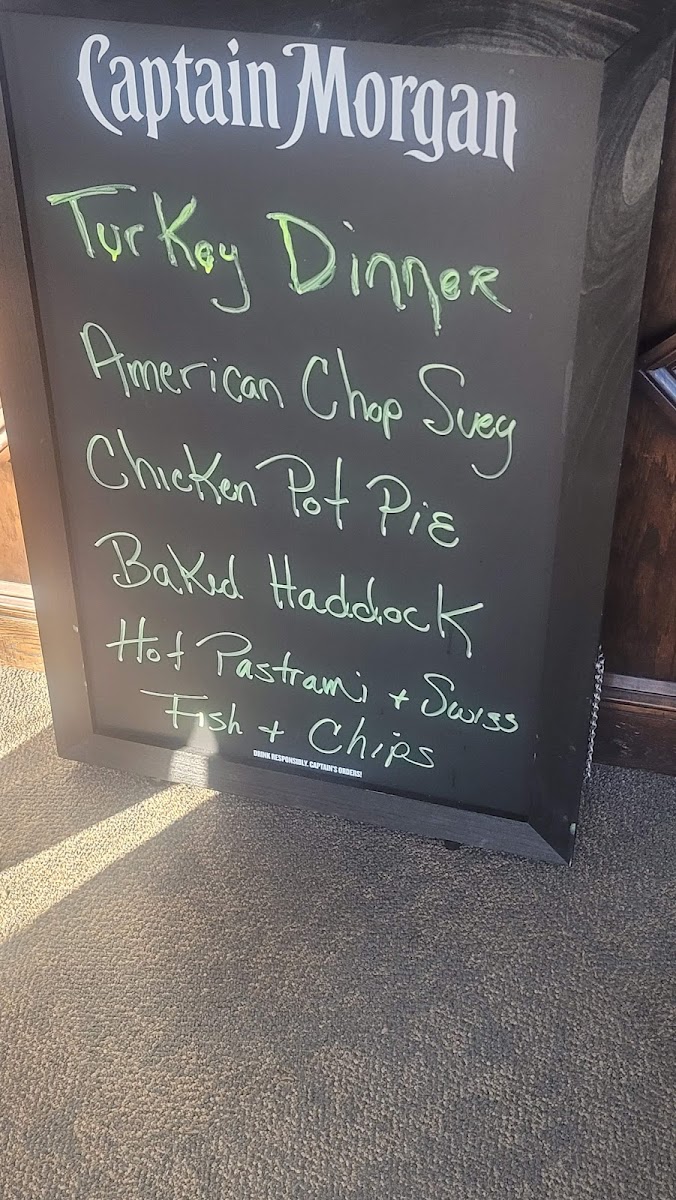 Captain Morgan
Turkey Dinner
American Chop Suey
Chicken Pot Pie
Baked Haddock
Hot Pastrami + Swiss
Fish + Chips
DRINK RESPONSIBLY. CAPTAIN'S ORDERS!